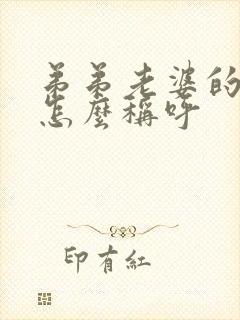 弟弟老婆的
怎麼稱呼
印有紅